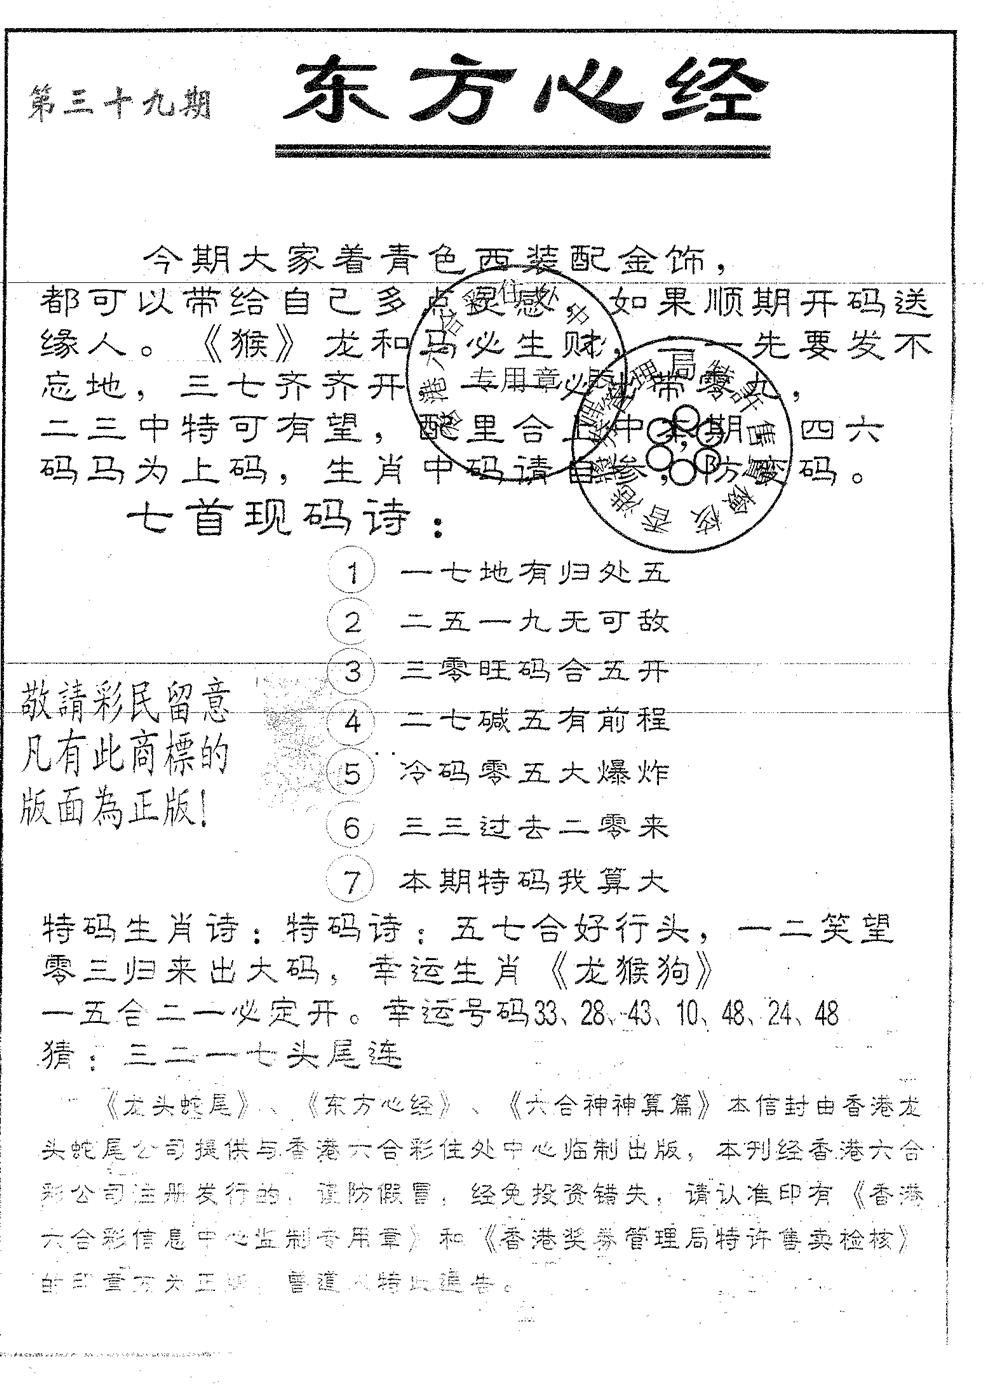 第三十九期
东方心经
今期大家着青色西装配金饰，
都可以带给自己多点灵感，如果顺期开码送
缘人。《猴》龙和马必生财，一一先要发不
忘地，三七齐齐开，必 带零九，
二三中特可有望，配里合上中本期，四六
码马为上码，生肖中码请自参，防 码。
专用章
七首现码诗：
① 一七地有归处五
② 二五一九无可敌
③ 三零旺码合五开
④ 二七碱五有前程
⑤ 冷码零五大爆炸
⑥ 三三过去二零来
⑦ 本期特码我算大
敬請彩民留意
凡有此商標的
版面為正版！
特码生肖诗：特码诗：五七合好行头，一二笑望
零三归来出大码，幸运生肖《龙猴狗》
一五合二一必定开。幸运号码33、28、43、10、48、24、48
猜：三二一七头尾连
《龙头蛇尾》、《东方心经》、《六合神神算篇》本信封由香港龙
头蛇尾公司提供与香港六合彩住处中心临制出版，本刊经香港六合
彩公司注册发行的，谨防假冒，经免投资错失，请认准印有《香港
六合彩信息中心监制专用章》和《香港奖券管理局特许售卖检核》
的印章方为正版，曾道人特此通告。